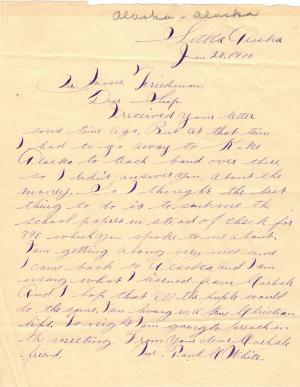 Alaska - Alaska
Sitka Alaska
Jan. 28, 1910
Mr. Friedman.
Dear Sup.
I received your letter
some time ago, But at that time
I had to go away to Kake
Alaska to teach band over there,
so I didn't answer you about the
money. So I thought the best
thing to do is to
school papers in stead of check for
39¢ which you spoke to me about.
I am getting along very nice since
I came back to Alaska and I am
using what I learned from Carlisle
And I hop that all the pupils would
do the same. I am living in a true Christian
life. To night I am going to preach in
the meeting. From your dear Carlisle
friend, Mr. Paul White.